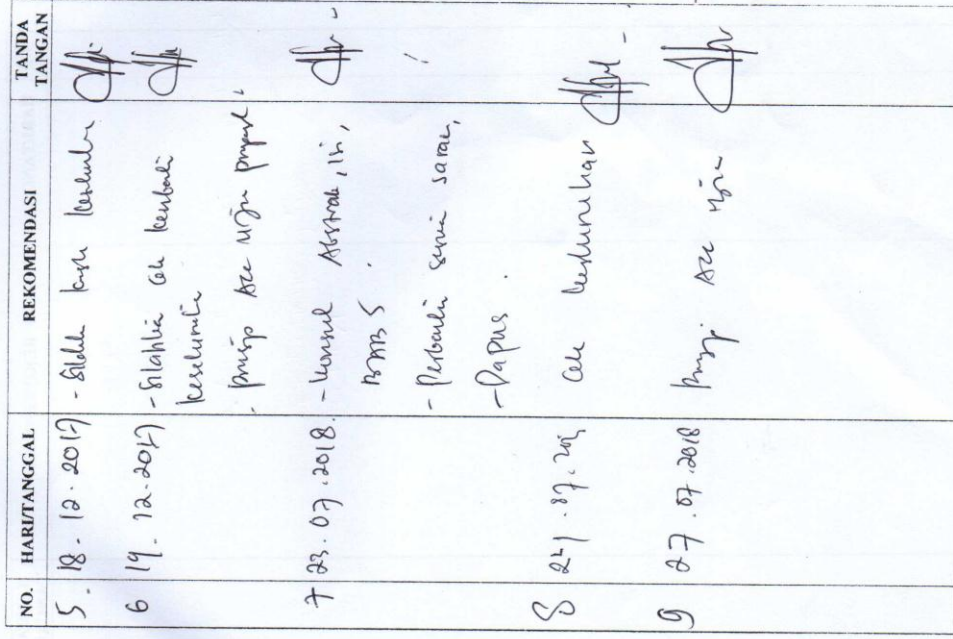 NO. HARI/TANGGAL REKOMENDASI TANDA TANGAN
5. 18. 12. 2017 - cek
6 19. 12. 2017 - Silahkan cek kembali
keseluruhan
- prinsip Acc ujian proposal
7 23. 07. 2018. - konsul Abstrak, isi,
BAB 5
- Perbaiki sesuai saran,
- Dapus
8 cek keseluruhan
9 27. 07. 2018 prinsip Acc ujian